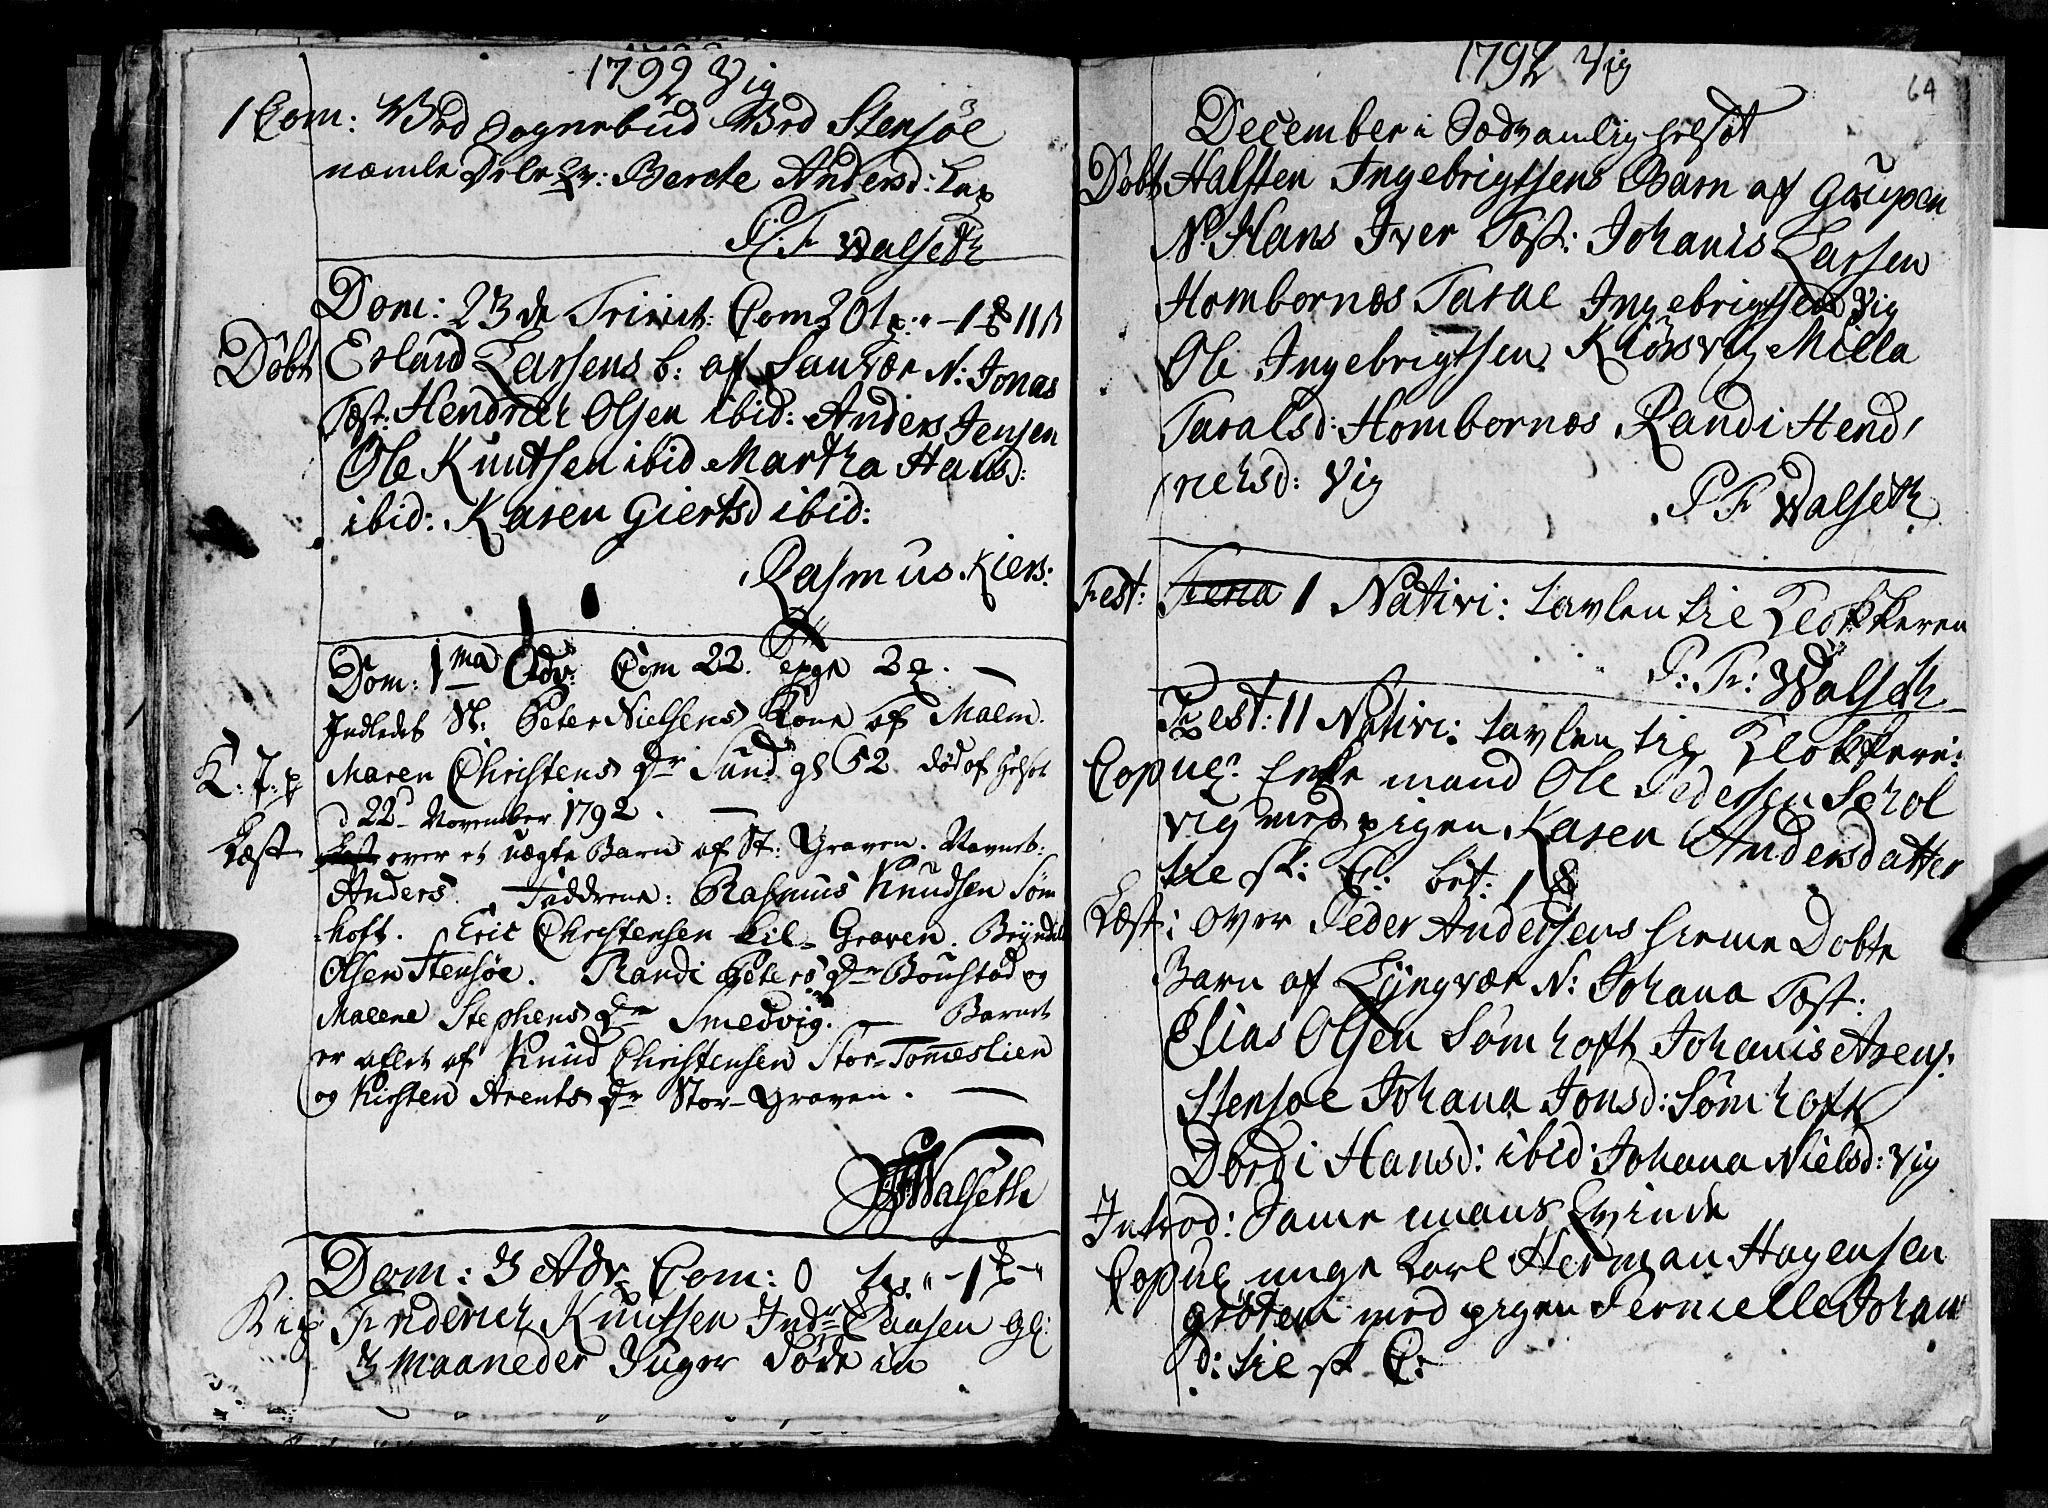 1792 Vig
1 Com: Ved Sognebud Ved Stensöe
næmle Qv: Berete Andersd: Lap
P. F. Walseth
Dom: 23 de Trinit: Com 20
Döbt Erland Larsens b: af Sanvær N: Jonas
Test: Hendrich Olsen ibid: Anders Jensen
Ole Knutsen ibid Martha Hansd:
ibid: Karen Giertsd ibid:
Rasmus Kiers:
Dom: 1ma Adv: Com 22.
Indledet St: Peter Nielsens Kone af Malm.
K: J: p Maren Christens Dr Sund gl 52 död af Helsot
d 22 November 1792.
Læst over et uægte Barn af St: Graven. Navnet:
Anders. Faddrene: Rasmus Knudsen Söm
hoft. Eric Christensen Lil-Graven. Bryndel
Olsen Stensöe. Randi Peters Dr Boustad og
Malene Stephens Dr Smedvig. Barnet
er aflet af Knud Christensen Stor-Tomeslien
og Kirsten Arents Dr Stor-Graven.
PF Walseth
Dom: 3 Adv Com: 0
Friderich Knutsen Inder Saasen gl:
3 Maaneder 3 uger döde in
1792 Vig
64
December i Sædvanlig helsot
Döbt Halsten Ingebrigtsens Barn af Gaupen
N: Hans Iver Test: Johanis Larsen
Hombornes Taral Ingebrigtsen Vig
Ole Ingebrigtsen Kiörsvig Milla
Taralsd: Hombornes Randi Hend
richsd: Vig
P F Walseth
Fest: Feria 1 Nativi: tavlen til Klokkeren
P: F: Walseth
Fest: 11 Nativi: tavlen til Klokkere:
Copul: Enke mand Ole Pedersen Schol
vig med pigen Karen Andersdatter
til sk: E: bet: 1
Læst: over Peder Andersens hieme Döbte
Barn af Lyngvær N: Johana Test:
Elias Olsen Sömhoft Johanis Arens:
Stensöe Johana Jonsd: Sömhoft
Dordi Hansd: ibid: Johana Nielsd: Vig
Introd: Same mans Qvinde
Copul unge Karl Herman Hagensen
gröten med pigen Pernielle Johan
d: til sk E: